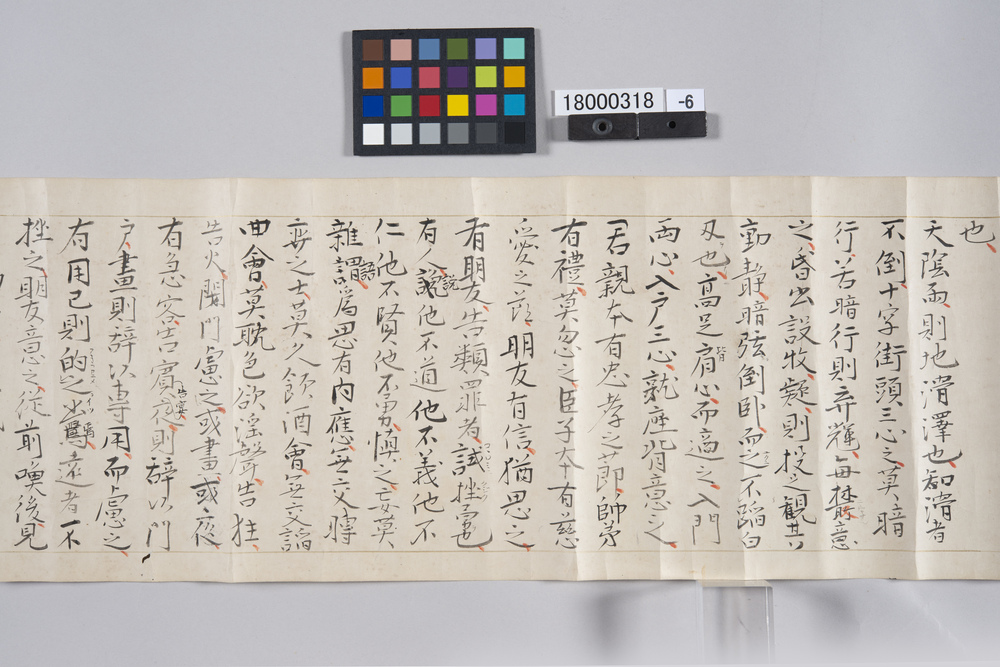 18000318 -6
也
天陰雨則地滑澤也知滑者
不倒十字街頭三心之莫暗
行若暗行則弃輝毎替意
之昏出設牧疑則投之観其
動静暗弦倒臥而之不蹈白
刄也高足肩心而適之入門
両心入戸三心就座背意之
君親本有忠孝之莭師弟
有禮莫忽之臣子大十有慈
愛之言明友有信猶思之
有朋友告類罪者試挫
有人說他不道他不義他不
仁他不賢他不勇慎之莫
雜謂為思有内應無文
之士莫久飲酒會無文謟
曲會莫耽色欲淫聲告狂
告火闘門慮之或畫或夜
有急客告賓則辞以門
戸畫則辞以専用而慮之
有用已則的之遠者不
挫之朋友意之從前喚後見